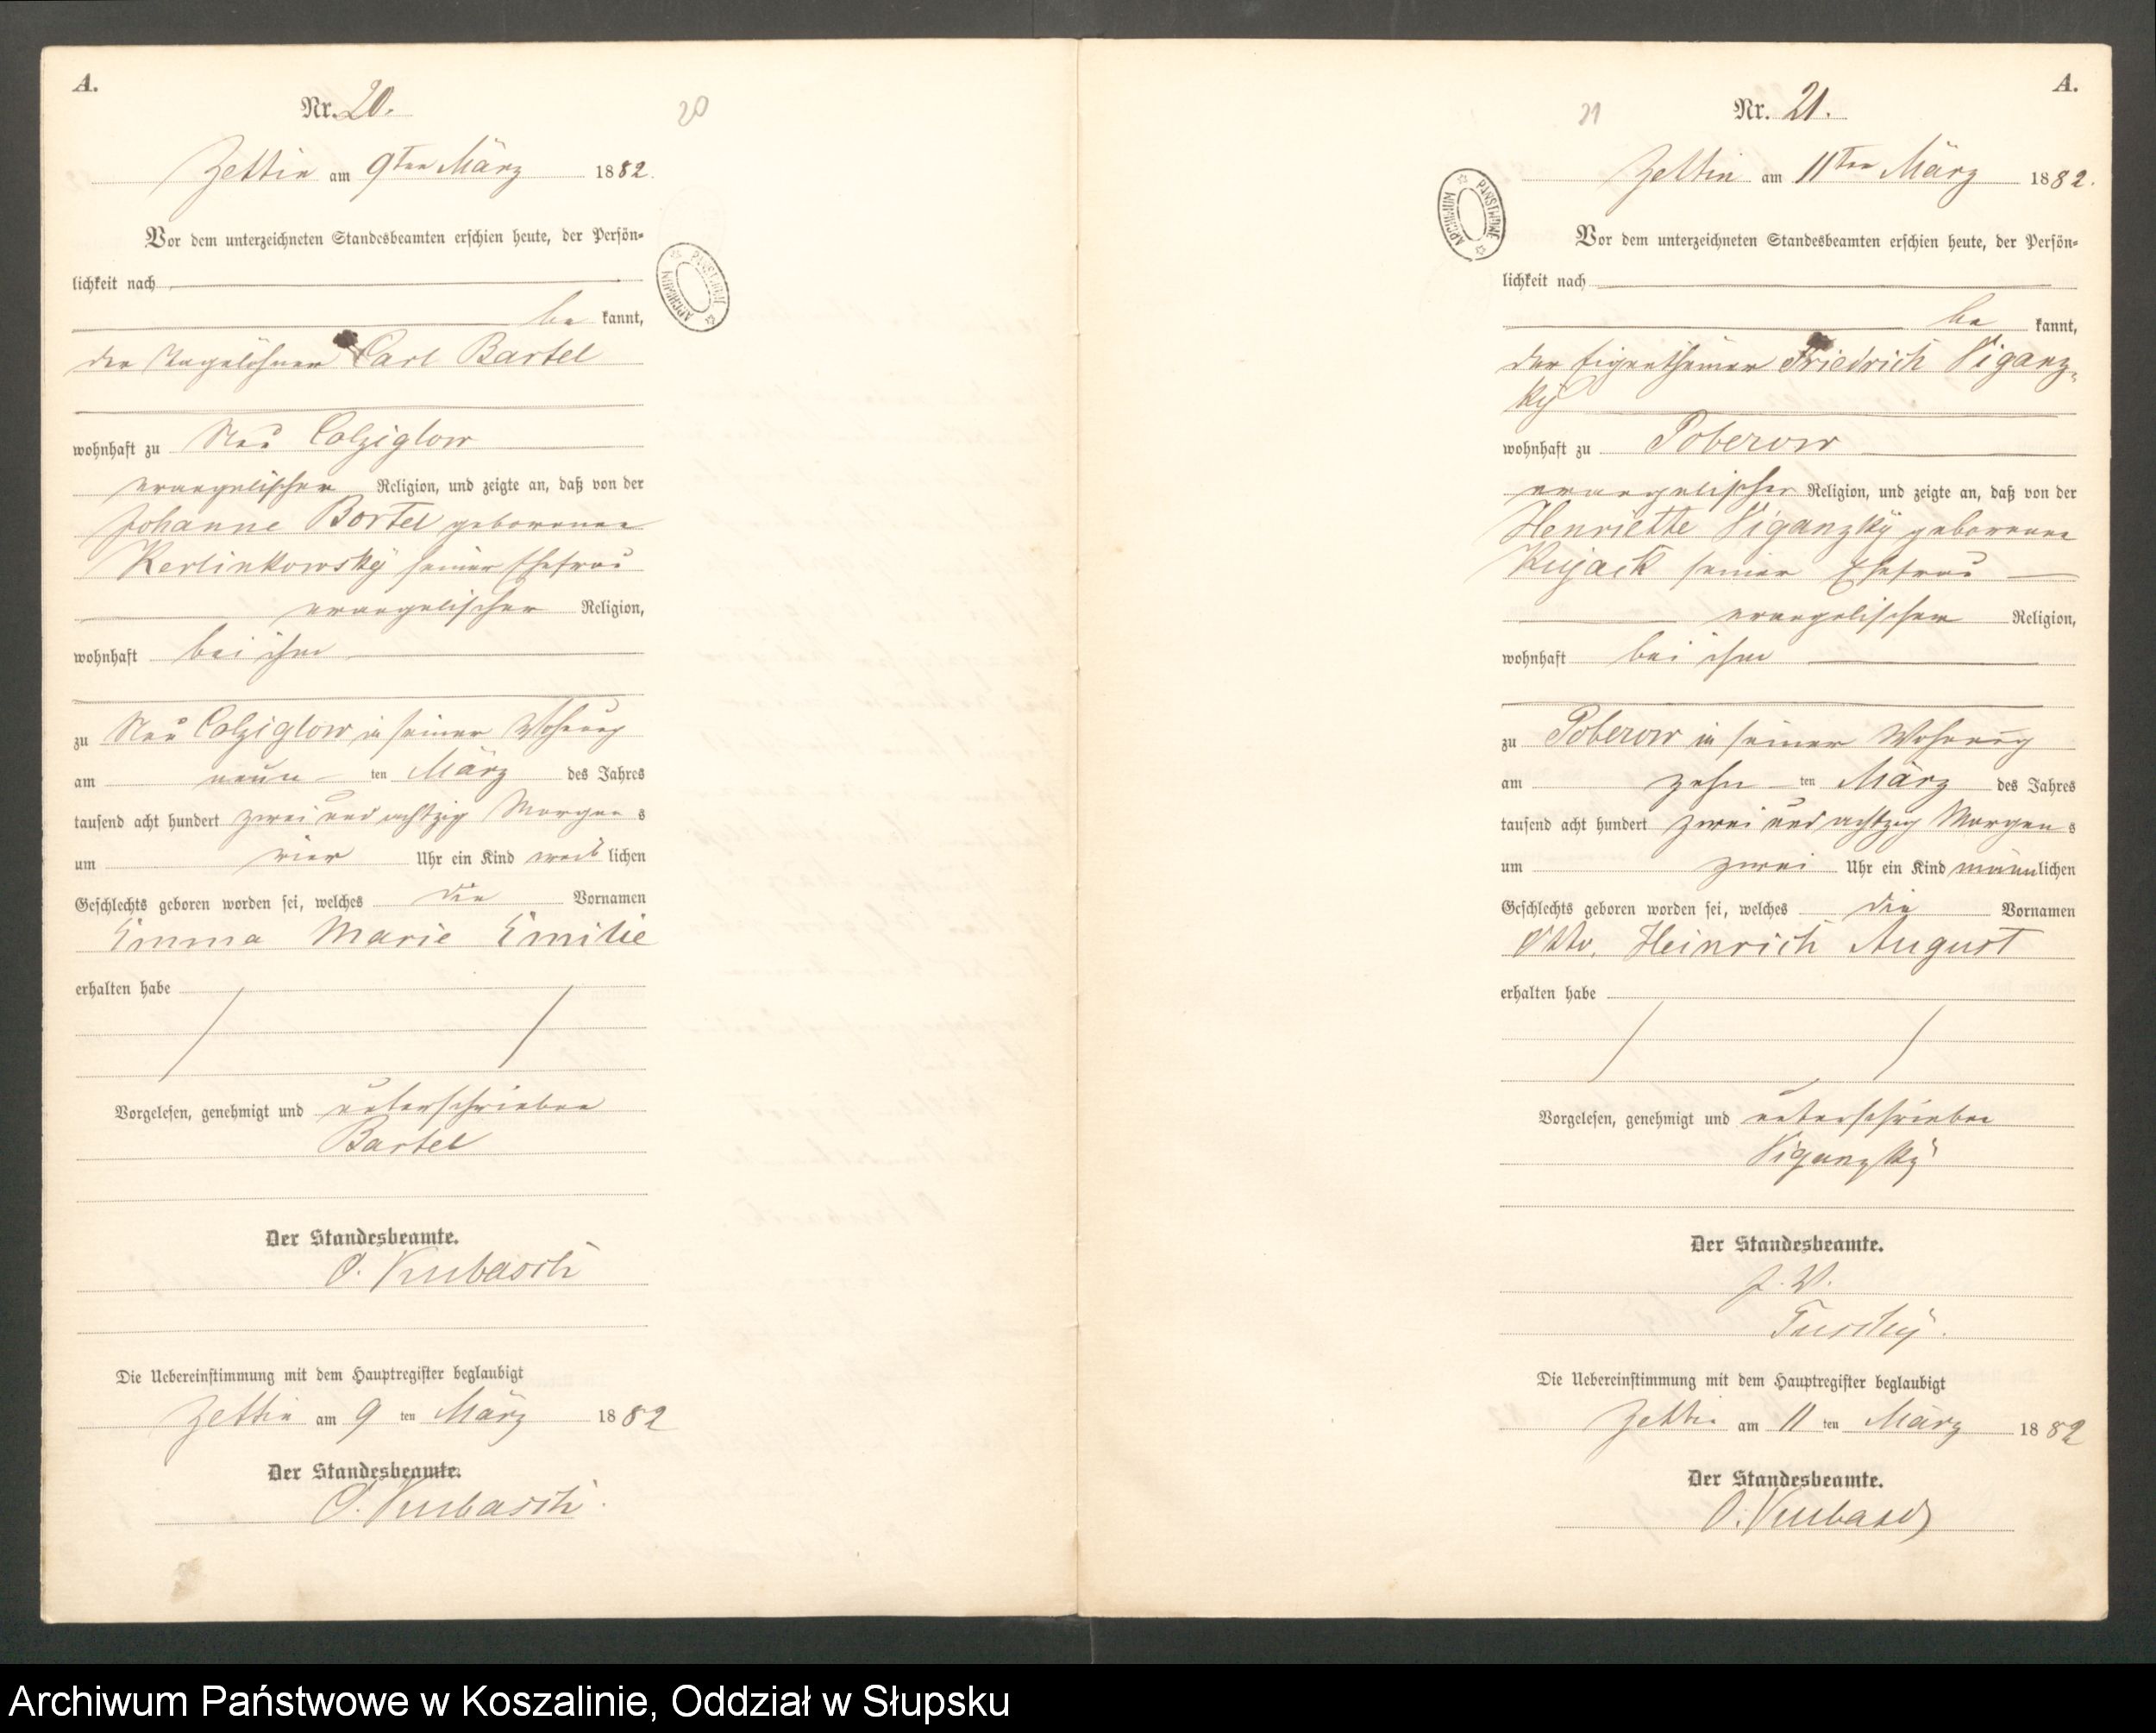 A.
Nr. 20.
20
Zettin am 9ten März 1882.
Vor dem unterzeichneten Standesbeamten erschien heute, der Persön-
lichkeit nach
be kannt,
der Tagelöhner Carl Bartel
wohnhaft zu Neu Colziglow
evangelischer Religion, und zeigte an, daß von der
Johanne Bartel geborenen
Kerlinkowsky seiner Ehefrau
evangelischer Religion,
wohnhaft bei ihm
zu Neu Colziglow in seiner Wohnung
am neun ten März des Jahres
tausend acht hundert zwei und achtzig Morgen s
um vier Uhr ein Kind weib lichen
Geschlechts geboren worden sei, welches die Vornamen
Emma Marie Emilie
erhalten habe
Vorgelesen, genehmigt und unterschrieben
Bartel
Der Standesbeamte.
O. Kubasch
Die Uebereinstimmung mit dem Hauptregister beglaubigt
Zettin am 9 ten März 1882
Der Standesbeamte.
O. Kubasch.
ARCHIWUM PAŃSTWOWE
A.
21
Nr. 21.
Zettin am 11ten März 1882.
Vor dem unterzeichneten Standesbeamten erschien heute, der Persön-
lichkeit nach
be kannt,
der Eigenthümer Friedrich Viganz-
ky
wohnhaft zu Poberow
evangelischer Religion, und zeigte an, daß von der
Henriette Viganzky geborenen
Kujack seiner Ehefrau
evangelischer Religion,
wohnhaft bei ihm
zu Poberow in seiner Wohnung
am zehn ten März des Jahres
tausend acht hundert zwei und achtzig Morgen s
um zwei Uhr ein Kind männlichen
Geschlechts geboren worden sei, welches die Vornamen
Otto, Heinrich August
erhalten habe
Vorgelesen, genehmigt und unterschrieben
Viganzky
Der Standesbeamte.
J. V.
Tuschy.
Die Uebereinstimmung mit dem Hauptregister beglaubigt
Zettin am 11 ten März 1882
Der Standesbeamte.
O. Kubasch
ARCHIWUM PAŃSTWOWE
Archiwum Państwowe w Koszalinie, Oddział w Słupsku